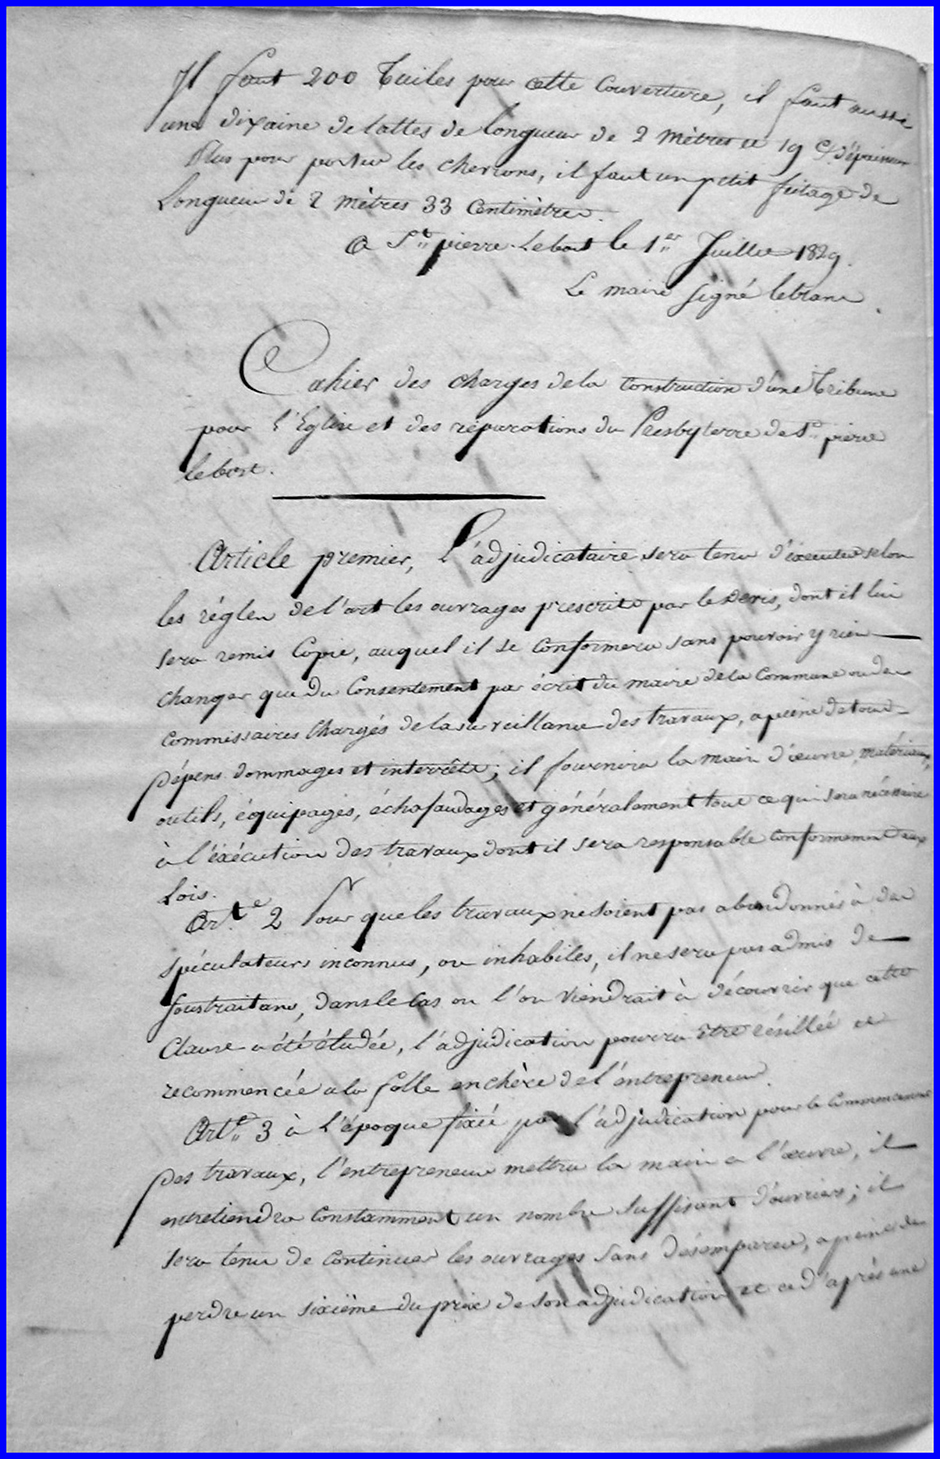 Il faut 200 tuiles pour cette couverture, il faut aussi
une dixaine de lattes de longueur de 2 mètres et 19 c. d'épaisseur
Plus pour porter les chevrons, il faut un petit feitage de
Longueur de 2 mètres 33 Centimètres.
a St. pierre Lebost le 1er Juillet 1829.
Le maire signé leblanc.
Cahier des charges de la Construction d'une Tribune
pour l'Eglise et des réparations du Presbyterre de St. pierre
lebost.
Article premier, L'adjudicataire sera tenu d'éxecuter selon
les régles de l'art les ouvrages prescrits par le Devis, dont il lui
sera remis Copie, auquel il se Conformera sans pouvoir y rien
changer que du Consentement par écrit du maire de la Commune ou des
Commissaires Chargés de la surveillance des travaux, a peine de tous
Dépens dommages et interrêts; il fournira la main d'œuvre, matériaux,
outils, équipages, échafaudages et généralement tout ce qui sera nécessaire
à l'éxécution des travaux dont il sera responsable Conformement aux
Lois.
Art.e 2 Pour que les travaux ne soient pas abandonnés à des
spéculateurs inconnus, ou inhabiles, il ne sera pas admis de
soustraitans, dans le Cas ou l'on viendrait à découvrir que cette
Clause a été éludée, l'adjudication pourra être résillée et
recommencée a la folle enchère de l'entrepreneur.
Art.e 3 à L'époque fixée par l'adjudication pour le Commencement
Des travaux, l'entrepreneur mettra la main a l'œuvre, il
entretiendra Constamment un nombre suffisant d'ouvriers; il
sera tenu de Continuer les ouvrages sans désemparer, a peine de
perdre un sixième du prix de son adjudication et ce d'après une